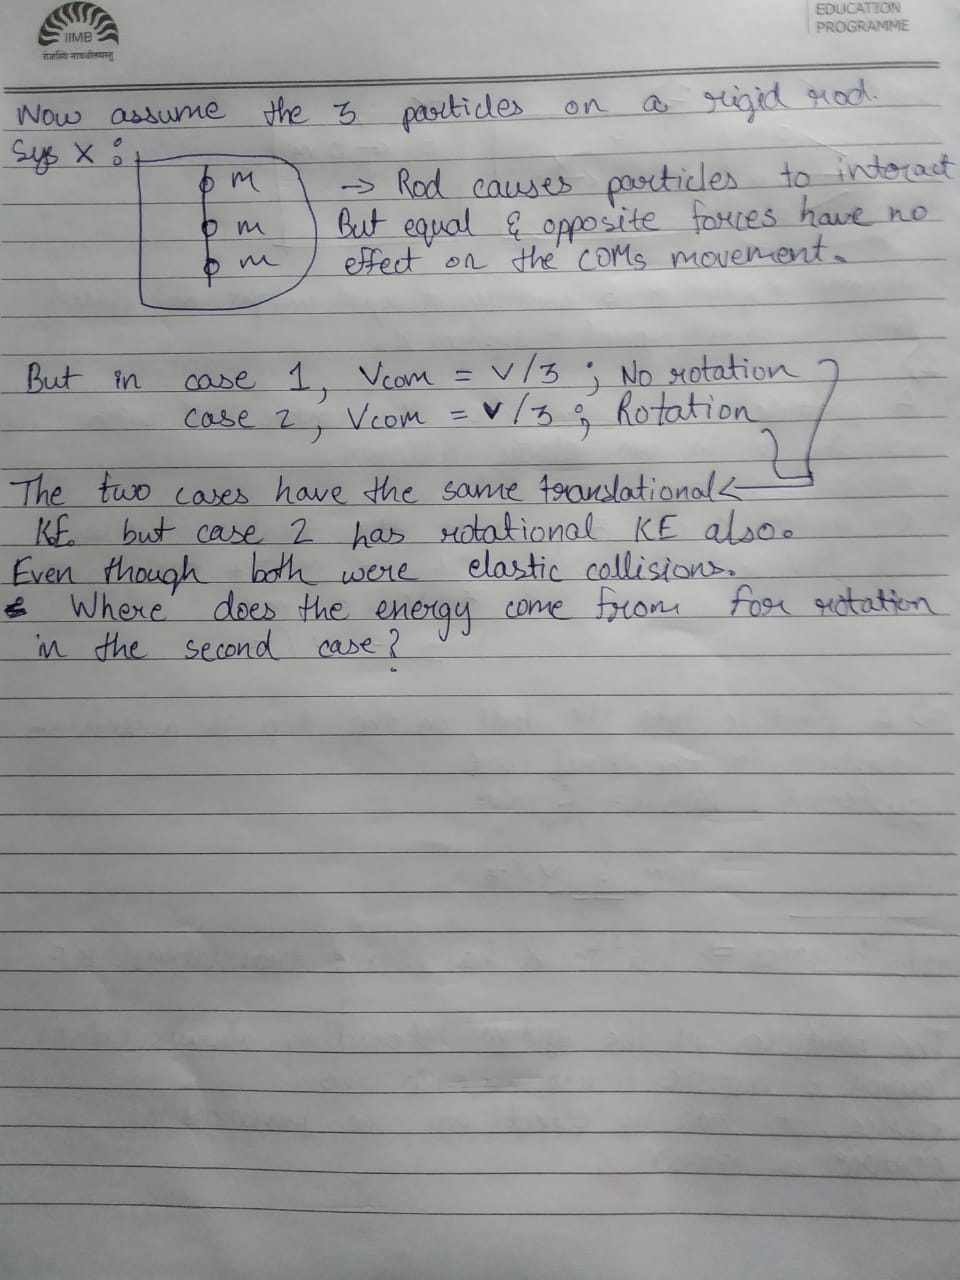 IIMB
EDUCATION
PROGRAMME
Now assume the 3 particles on a rigid rod.
Sys X :
m
m
m
→ Rod causes particles to interact
But equal & opposite forces have no
effect on the COMs movement.
But in case 1, Vcom = V/3 ; No rotation
case 2, Vcom = V/3 ; Rotation
The two cases have the same translational
KE. but case 2 has rotational KE also.
Even though both were elastic collisions.
Where does the energy come from for rotation
in the second case?